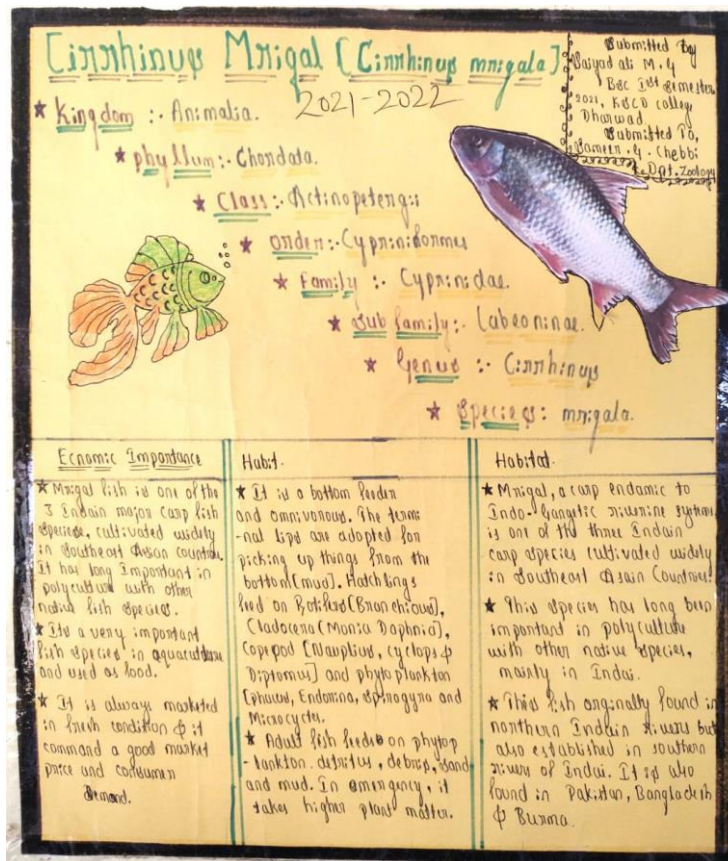 Cirrhinus Mrigal [Cirrhinus mrigala]
2021-2022
Submitted By
Saiyad ali M. G
Bsc Ist semester
2021, KSCD college
Dharwad.
Submitted To,
Sameen. G. Chebbi
Dpt. Zoology
★ Kingdom :- Animalia.
★ phyllum :- Chordata.
★ Class :- Actinopetergii
★ Order :- Cypriniformes
★ Family :- Cyprinidae.
★ Sub family :- Labeoninae.
★ Genus :- Cirrhinus
★ Species : mrigala.
Ecnomic Importance
★ Mrigal fish is one of the
3 Indain major carp fish
species, cultivated widely
in Southeast Asian countries.
It has long Important in
polyculture with other
native fish species.
★ Its a very important
fish species in aquaculture
and used as food.
★ It is always marketed
in fresh condition & it
command a good market
price and consumer
Demand.
Habit.
★ It is a bottom feeder
and omnivorous. The termi
-nal lips are adopted for
picking up things from the
bottom [mud]. Hatchlings
feed on Rotifers [Branchious],
Cladocera [Monia Daphnia],
Copepod [Nauplius, cyclops &
Diptomus] and phytoplankton
[phacus, Endorina, spirogyra and
Microcyctes.
★ Adult fish feeds on phytop
-lankton, detritus, debris, sand
and mud. In emergency, it
takes higher plant matter.
Habitat.
★ Mrigal, a carp endamic to
Indo-Gangetic riverine systems
is one of the three Indain
carp species cultivated widely
in Southeast Asain Countries.
★ This species has long been
important in polyculture
with other native species,
mainly in Indai.
★ This fish orginally found in
northern Indain rivers but
also established in southern
rivers of Indai. It is also
found in Pakistan, Bangladesh
& Burma.